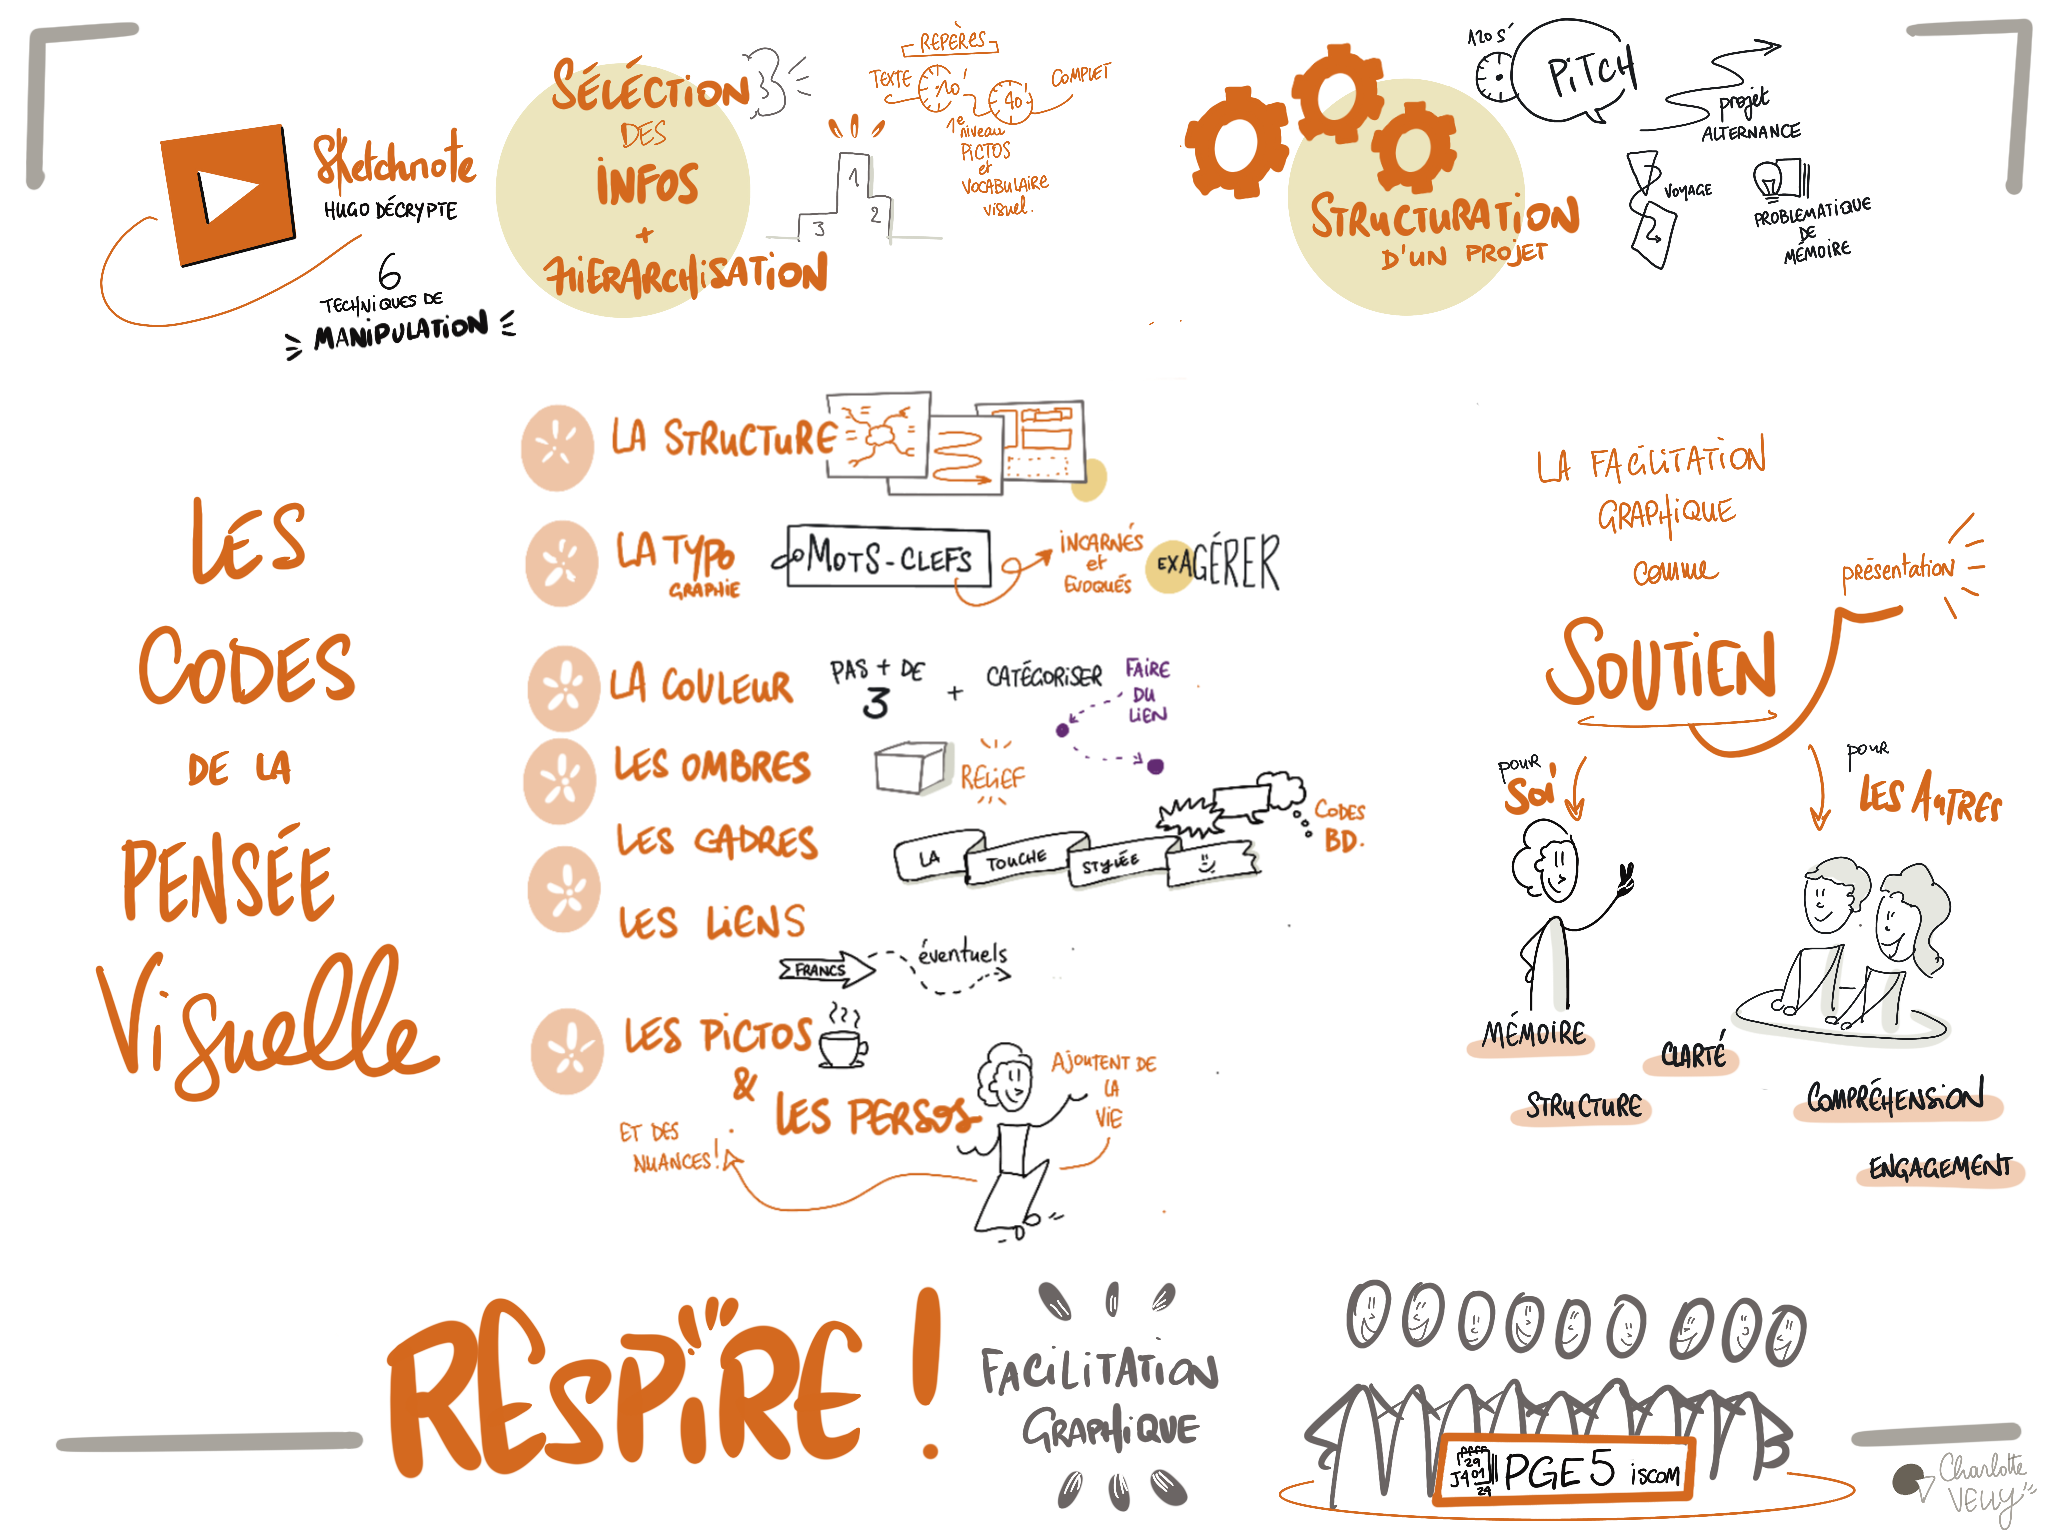 Sketchnote
HUGO DÉCRYPTE
6
TECHNIQUES DE
MANIPULATION
SÉLÉCTION
DES
INFOS
+
HIERARCHISATION
1
2
3
REPÈRES
TEXTE
20'
40'
COMPLET
1e niveau
PICTOS
et
VOCABULAIRE
visuel.
STRUCTURATION
D'UN PROJET
120 s'
PITCH
projet
ALTERNANCE
VOYAGE
PROBLEMATIQUE
DE
MÉMOIRE
LES
CODES
DE LA
PENSÉE
Visuelle
LA STRUCTURE
LA TYPO
GRAPHIE
MOTS-CLEFS
INCARNÉS
et
EVOQUÉS
EXAGÉRER
LA COULEUR
PAS + DE
3
+
CATÉGORISER
FAIRE
DU
LIEN
LES OMBRES
RELIEF
LES CADRES
LA TOUCHE STYLÉE
CODES
BD.
LES LIENS
FRANCS
éventuels
LES PICTOS
&
LES PERSOS
AJOUTENT DE
LA
VIE
ET DES
NUANCES!
LA FACILITATION
GRAPHIQUE
comme
SOUTIEN
présentation
pour
Soi
pour
LES AUTRES
MÉMOIRE
CLARTÉ
STRUCTURE
COMPRÉHENSION
ENGAGEMENT
RESPIRE !
FACILITATION
GRAPHIQUE
J4 29 01 24 PGE5 iscom
Charlotte
VEUY